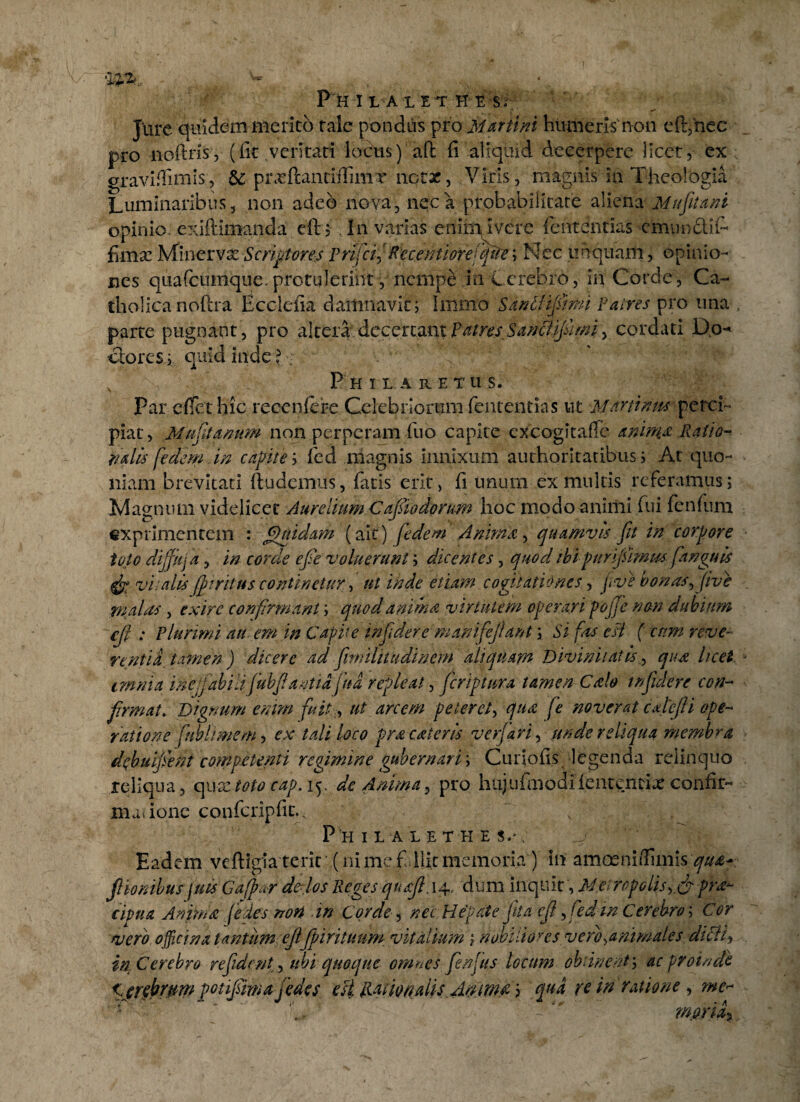 122
PHILALETHES.
Jure quidem merito tale pondus pro Martini humeris non eſt, nec
pro noſtris, (ſit veritati locus) aſt ſi aliquid decerpere licet, ex
graviſſimis, & præſtantiſſimæ notæ, Viris, magnis in Theologiâ
Luminaribus, non adeò nova, nec à probabilitate aliena Muſitani
opinio exiſtimanda eſt; In varias enim ivere ſententias emunctiſ-
ſimæ Minervæ Scriptores Priſci, Recentioreſque; Nec unquam, opinio-
nes quaſcumque protulerint, nempè in Cerebro, in Corde, Ca-
tholica noſtra Eccleſia damnavit; Immo Sanctiſſimi Patres pro una
parte pugnant, pro alterâ decertant Patres Sanctiſſimi, cordati Do-
ctores; quid inde?
PHILARETUS.
Par eſſet hîc recenſere Celebriorum ſententias ut Martinus perci-
piat, Muſitanum non perperam ſuo capite excogitaſſe animæ Ratio-
nalis ſedem in capite; ſed magnis innixum authoritatibus; At quo-
niam brevitati ſtudemus, ſatis erit, ſi unum ex multis referamus;
Magnum videlicet Aurelium Caſſiodorum hoc modo animi ſui ſenſum
exprimentem : Quidam (ait) ſedem Animæ, quamvis ſit in corpore
toto diffuſa, in corde eſſe voluerunt; dicentes, quod ibi puriſſimus ſanguis
& vitalis ſpiritus continetur, ut inde etiam cogitationes, ſive bonas, ſive
malas, exire confirmant; quod anima virtutem operari poſſe non dubium
eſt : Plurimi autem in Capite inſidere manifeſtant; Si fas eſt (cum reve-
rentiâ tamen) dicere ad ſimilitudinem aliquam Divinitatis, quæ licet
omnia ineffabili ſubſtantiâ ſuâ repleat, ſcriptura tamen Cælo inſidere con-
firmat. Dignum enim fuit, ut arcem peteret, quæ ſe noverat cæleſti ope-
ratione ſublimem, ex tali loco præ cæteris verſari, unde reliqua membra
debuiſſent competenti regimine gubernari; Curioſis legenda relinquo
reliqua, quæ toto cap. 15. de Anima, pro hujuſmodi ſententiæ confir-
matione conſcripſit.
PHILALETHES.
Eadem veſtigia terit (ni me fallit memoria) in amœniſſimis quæ-
ſtionibus ſuis Gaſpar de los Reges quæſt. 14. dum inquit, Metropolis, & præ-
cipua Animæ ſedes non in Corde, nec Hepate ſita eſt, ſed in Cerebro; Cor
vero officina tantùm eſt ſpirituum vitalium; nobiliores verò, animales dicti,
in Cerebro reſident, ubi quoque omnes ſenſus locum obtinent; ac proinde
Cerebrum potiſſima ſedes eſt Rationalis Animæ; quâ re in ratione, me-
moriâ,